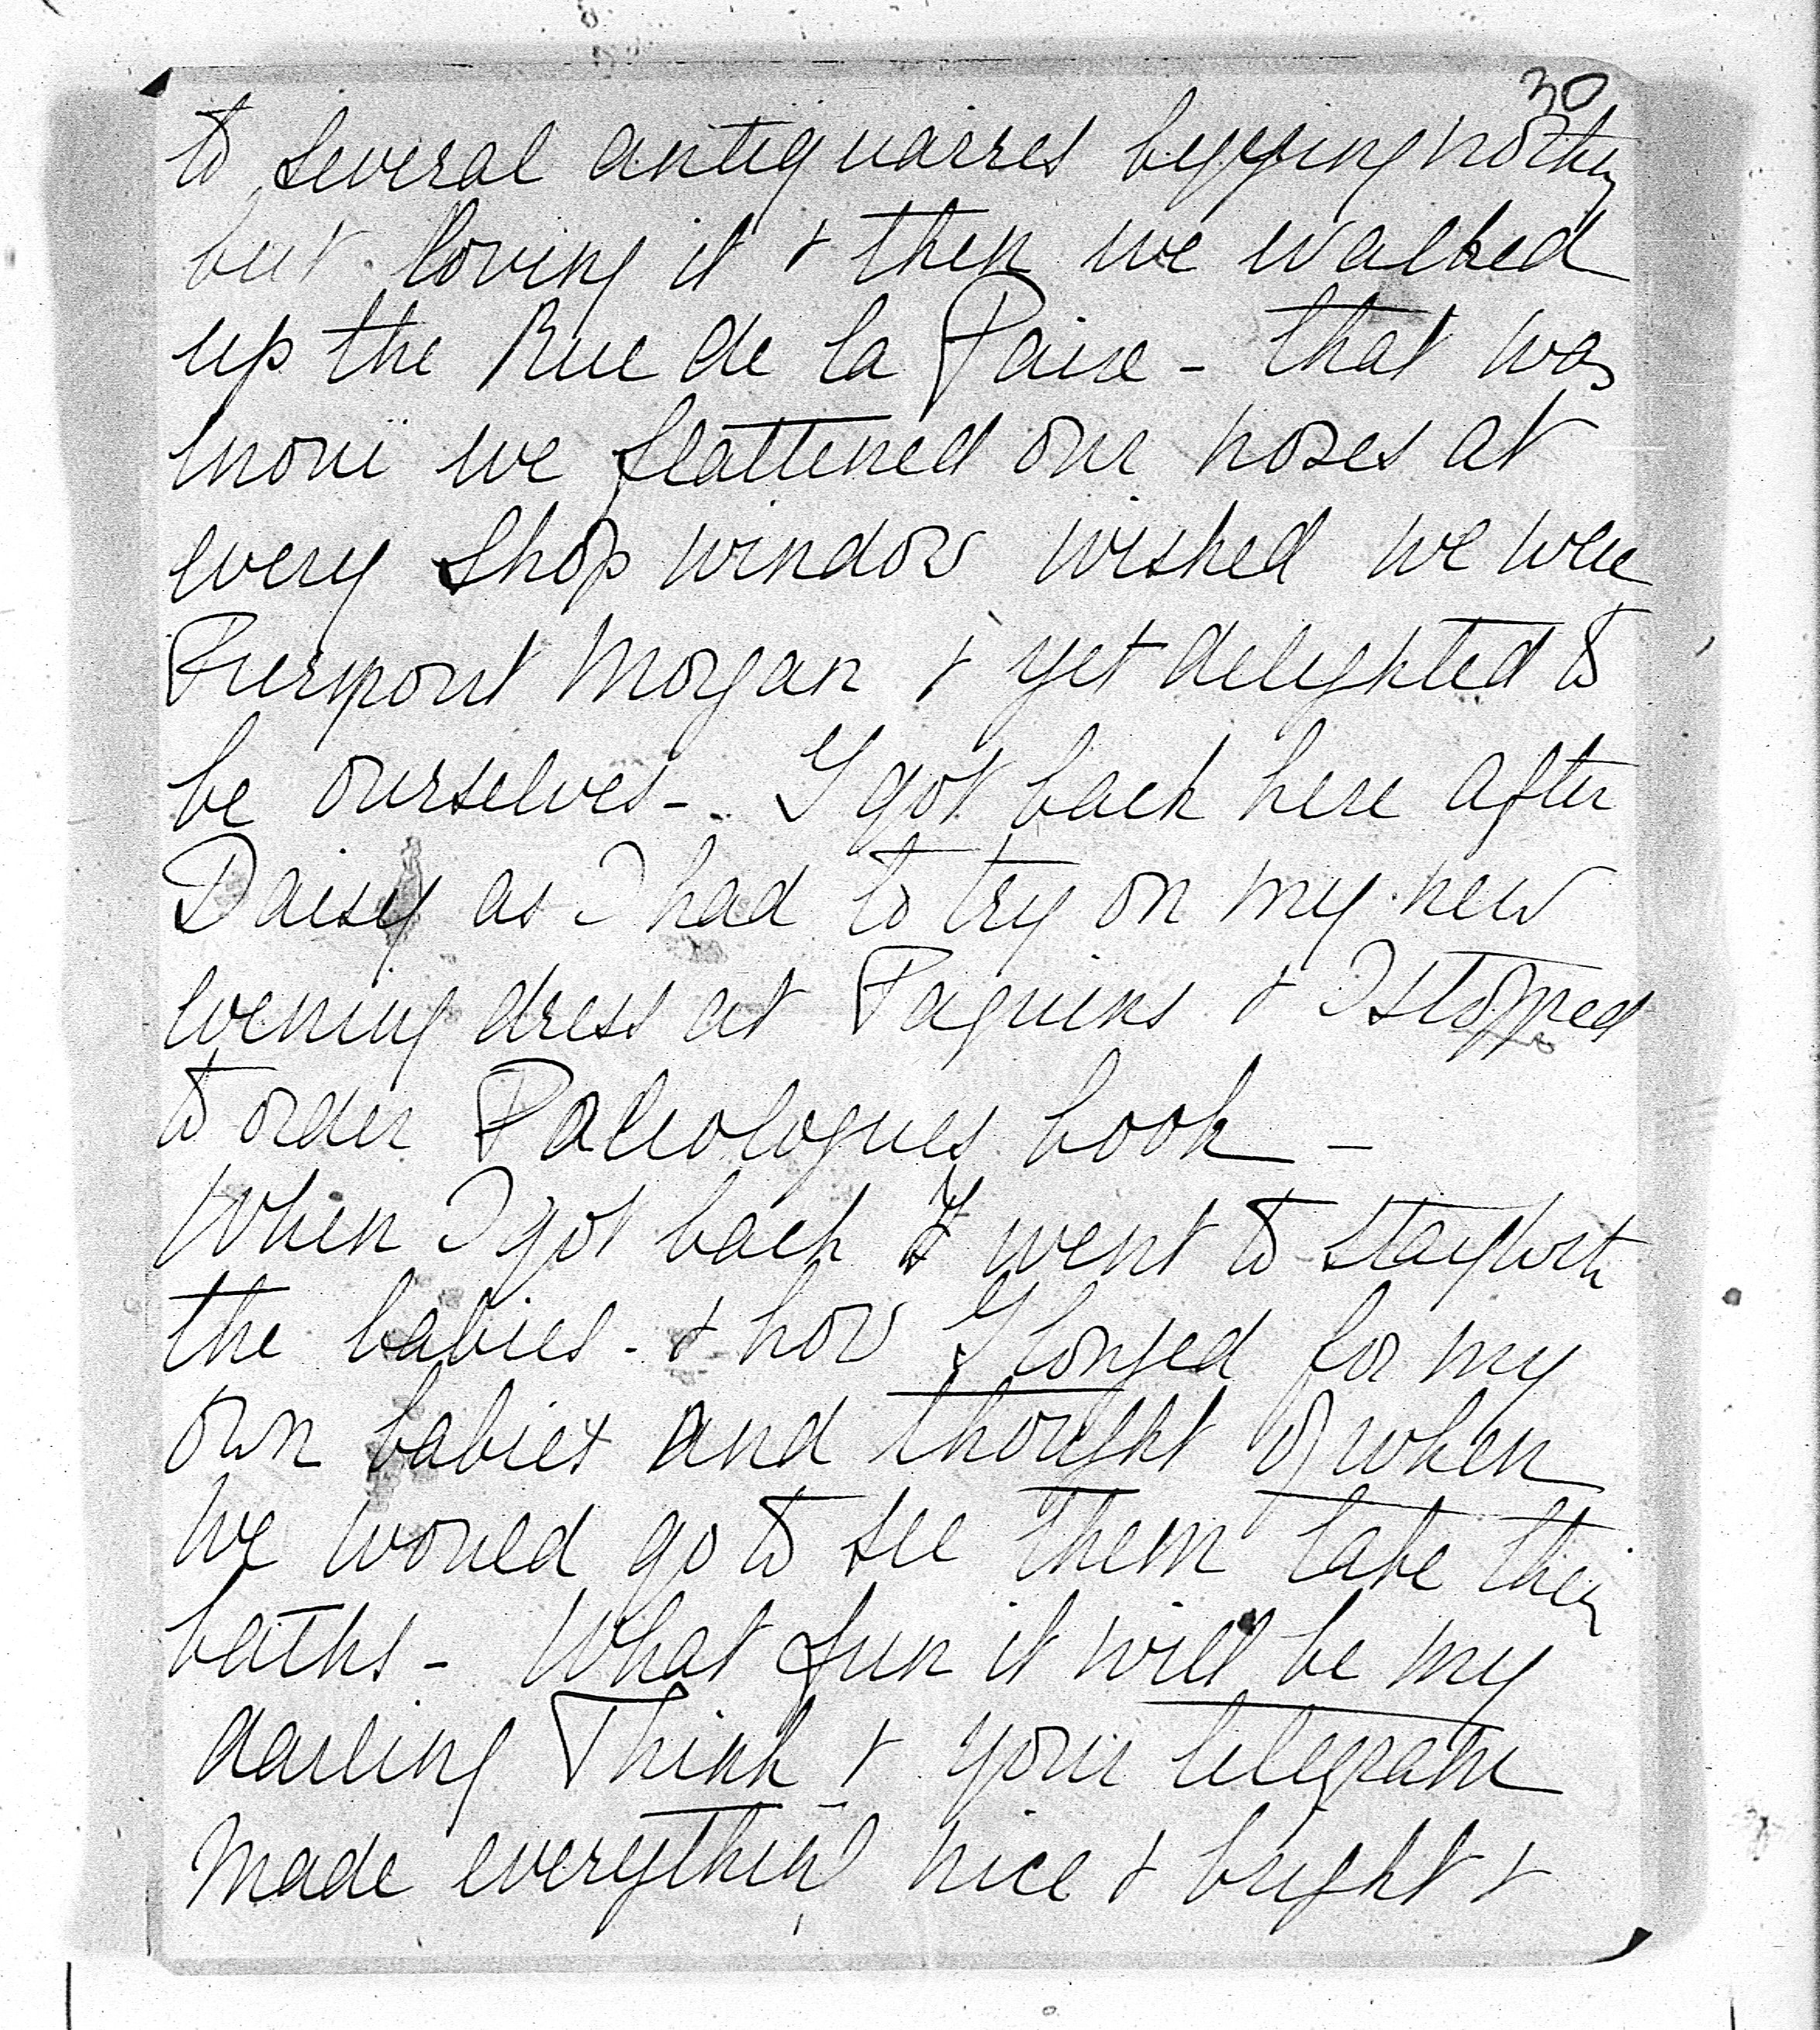 30
to several antiquaires begging nothing
but loving it & then we walked
up the Rue de la Paix - that was
inouï we flattened our noses at
every shop window wished we were
Pierpont Morgan & yet delighted to
be ourselves - I got back here after
Daisy as I had to try on my new
evening dress at Paquins & I stopped
to order Paleologues book -
When I got back I went to stay with
the babies - & how I longed for my
own babies and thought of when
we would go to see them take their
baths - What fun it will be my
darling Think & your telegram
made everything nice & bright &